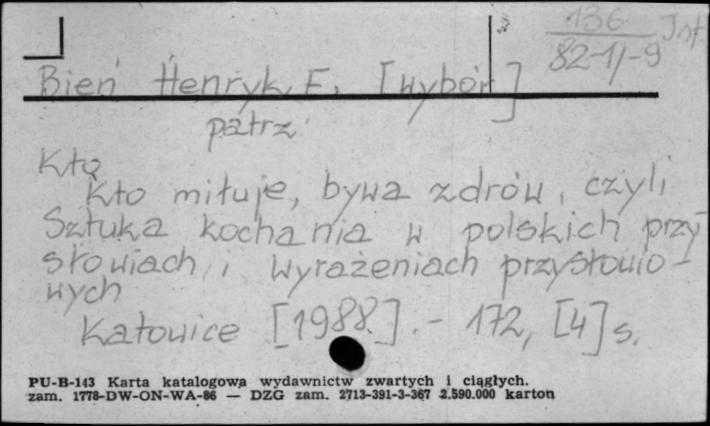 136 Inf.
82-1/-9
Bień Henryk F. [wybór]
patrz
Kto
Kto miłuje, bywa zdrów, czyli
Sztuka kochania w polskich przy-
słowiach i wyrażeniach przysłowio-
wych
Katowice [1988]. - 172, [4] s.
PU-B-143 Karta katalogowa wydawnictw zwartych i ciągłych.
zam. 1778-DW-ON-WA-86 — DZG zam. 2713-391-3-367 2.590.000 karton